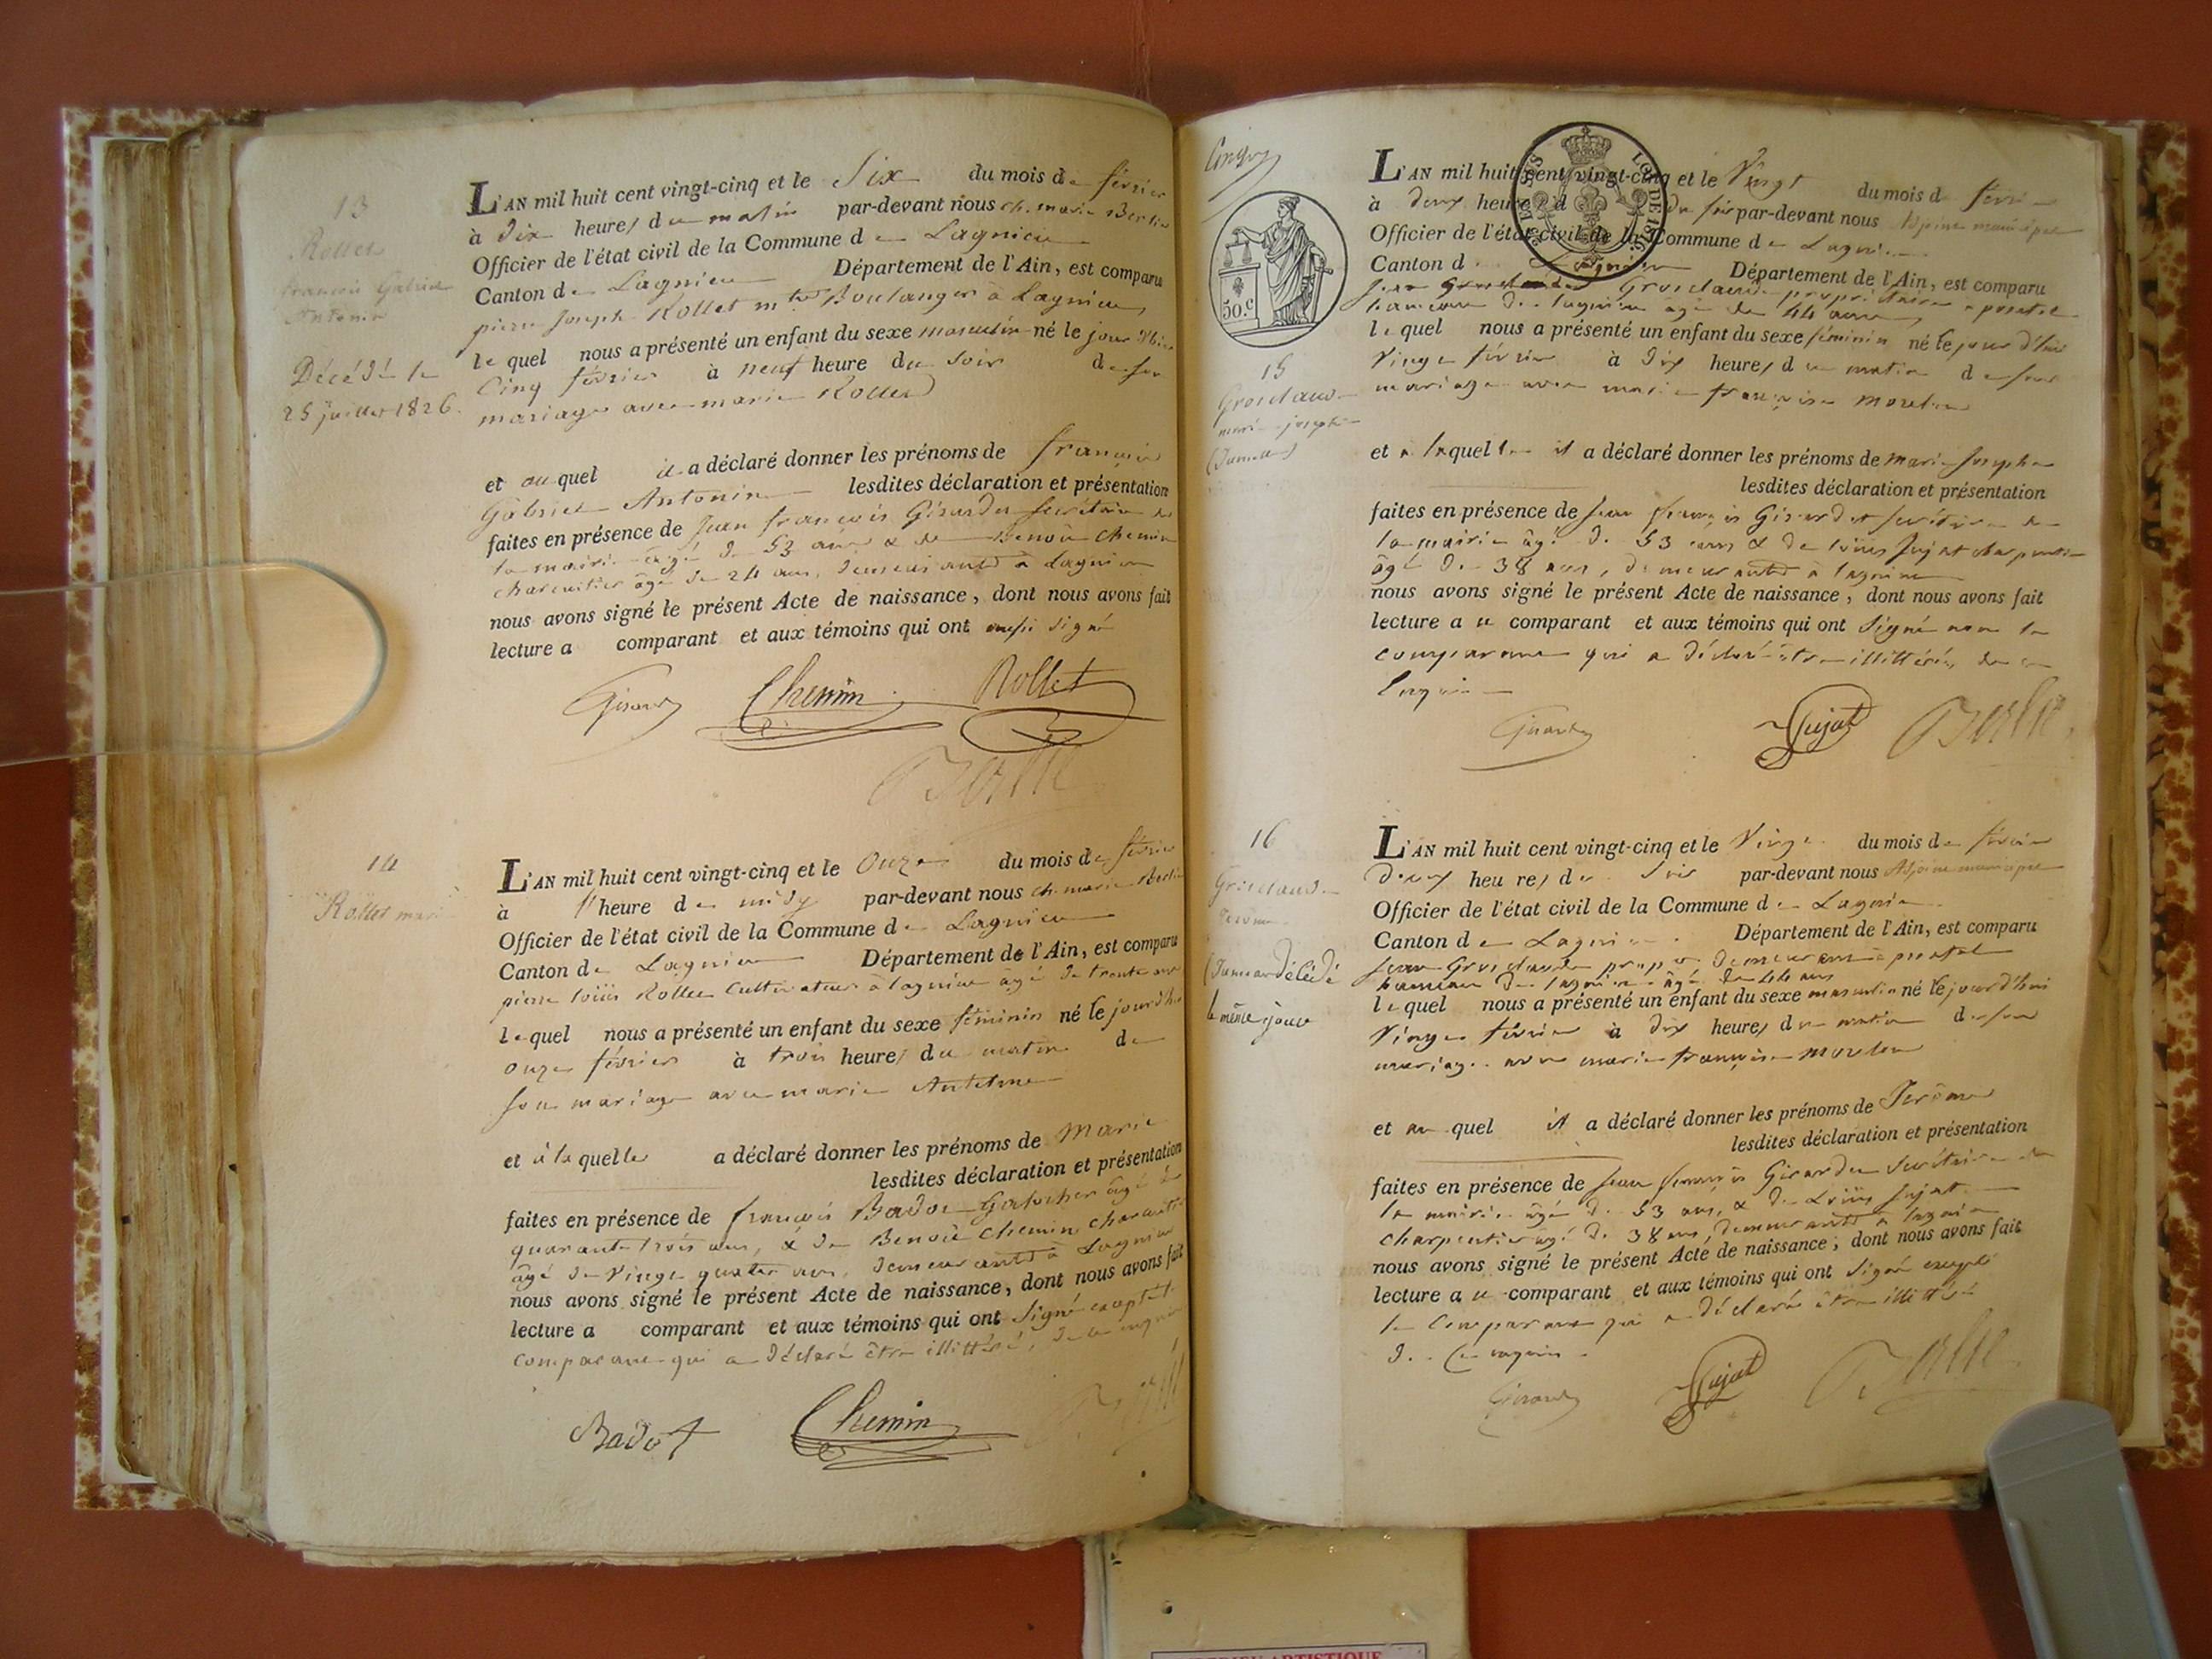 13
Rollet
françois Gabriel
Antonin
Décédé le
25 juillet 1826.
L'AN mil huit cent vingt-cinq et le Six du mois de février
à Dix heures du matin par-devant nous ch. marie Berlie
Officier de l'état civil de la Commune de Lagnieu
Canton de Lagnieu Département de l'Ain, est comparu
pierre Joseph Rollet Boulanger à Lagnieu
lequel nous a présenté un enfant du sexe masculin né le jour
Cinq février à neuf heure du soir de son
mariage avec marie Rollet
et auquel il a déclaré donner les prénoms de françois
Gabriel Antonin lesdites déclaration et présentation
faites en présence de Jean françois Girardet secrétaire de
la mairie âgé de 53 ans & de Benoit Chemin
charcutier âgé de 24 ans, demeurants à Lagnieu
nous avons signé le présent Acte de naissance, dont nous avons fait
lecture a comparant et aux témoins qui ont aussi signé
Girardet Chemin Rollet
Berlie
14
Rollet marie
L'AN mil huit cent vingt-cinq et le Onze du mois de février
à heure de midy par-devant nous ch. marie Berlie
Officier de l'état civil de la Commune de Lagnieu
Canton de Lagnieu Département de l'Ain, est comparu
pierre loüis Rollet Cultivateur à lagnieu âgé de trente ans
lequel nous a présenté un enfant du sexe féminin né le jourd'hui
onze février à trois heures du matin de
son mariage avec marie Antelme
et à laquelle a déclaré donner les prénoms de Marie
lesdites déclaration et présentation
faites en présence de françois Badot âgé de
quarante trois ans, & de Benoit Chemin charcutier
âgé de vingt quatre ans, demeurants à Lagnieu
nous avons signé le présent Acte de naissance, dont nous avons fait
lecture a comparant et aux témoins qui ont signé excepté le
comparant qui a déclaré être illittéré, de ce enquis
Badot Chemin Berlie
50.c
LOI DE 1816
15
Groslaude
marie josephe
(Jumelle)
L'AN mil huit cent vingt-cinq et le Vingt du mois de février
à deux heures du soir par-devant nous Adjoint municipal
Officier de l'état civil de la Commune de Lagnieu
Canton de Lagnieu Département de l'Ain, est comparu
Jean Groslaude propriétaire à
hameau de lagnieu âgé de 44 ans
lequel nous a présenté un enfant du sexe féminin né le jour d'hui
Vingt février à dix heures du matin de son
mariage avec marie françoise
et a laquelle il a déclaré donner les prénoms de marie Josephe
lesdites déclaration et présentation
faites en présence de Jean françois Girardet secrétaire de
la mairie âgé de 53 ans & de loüis Jujat charpentier
âgé de 38 ans, demeurants à lagnieu
nous avons signé le présent Acte de naissance, dont nous avons fait
lecture au comparant et aux témoins qui ont signé non le
comparant qui a déclaré être illittéré, de ce
Enquis
Girardet Jujat Berlie
16
Groslaude
Jerôme
(Jumeau) décédé
le même jour
L'AN mil huit cent vingt-cinq et le Vingt du mois de février
deux heures du soir par-devant nous Adjoint municipal
Officier de l'état civil de la Commune de Lagnieu
Canton de Lagnieu Département de l'Ain, est comparu
Jean Groslaude demeurant à
hameau de lagnieu âgé de 44 ans
lequel nous a présenté un enfant du sexe masculin né le jourd'hui
Vingt février à dix heures du matin de son
mariage avec marie françoise
et auquel il a déclaré donner les prénoms de Jerôme
lesdites déclaration et présentation
faites en présence de Jean françois Girardet secrétaire de
la mairie âgé de 53 ans, & de Loüis Jujat
charpentier agé de 38 ans, demeurants à lagnieu
nous avons signé le présent Acte de naissance, dont nous avons fait
lecture au comparant et aux témoins qui ont signé excepté
le comparant qui a déclaré être illittéré
de ce enquis
Girardet Jujat Berlie
ARTISTIQUE